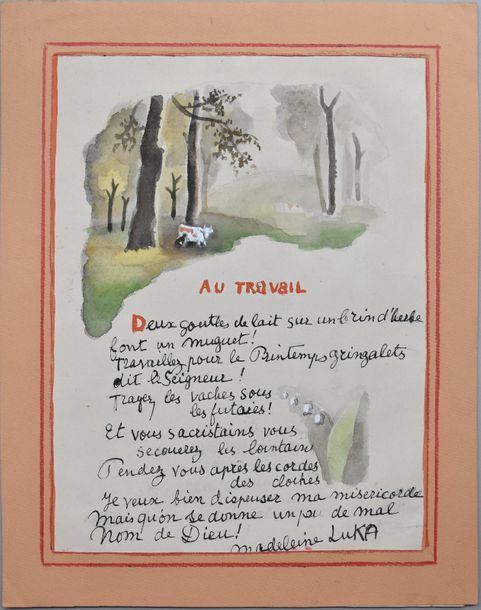 AU TRAVAIL
Deux gouttes de lait sur un brin d'herbe
font un muguet!
Travaillez pour le Printemps gringalets
dit le Seigneur!
Trayez les vaches sous
les futaies!
Et vous sacristains vous
secouerez les lountain
Pendez vous après les cordes
des cloches
Je veux bien dispenser ma misericorde
Mais qu'on se donne un peu de mal
Nom de Dieu!
Madeleine LUKA